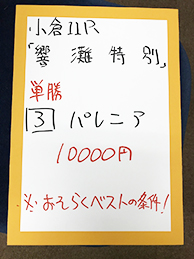 小倉11R
「響灘特別」
単勝
3 パレニア
10000円
※おそらくベストの条件!